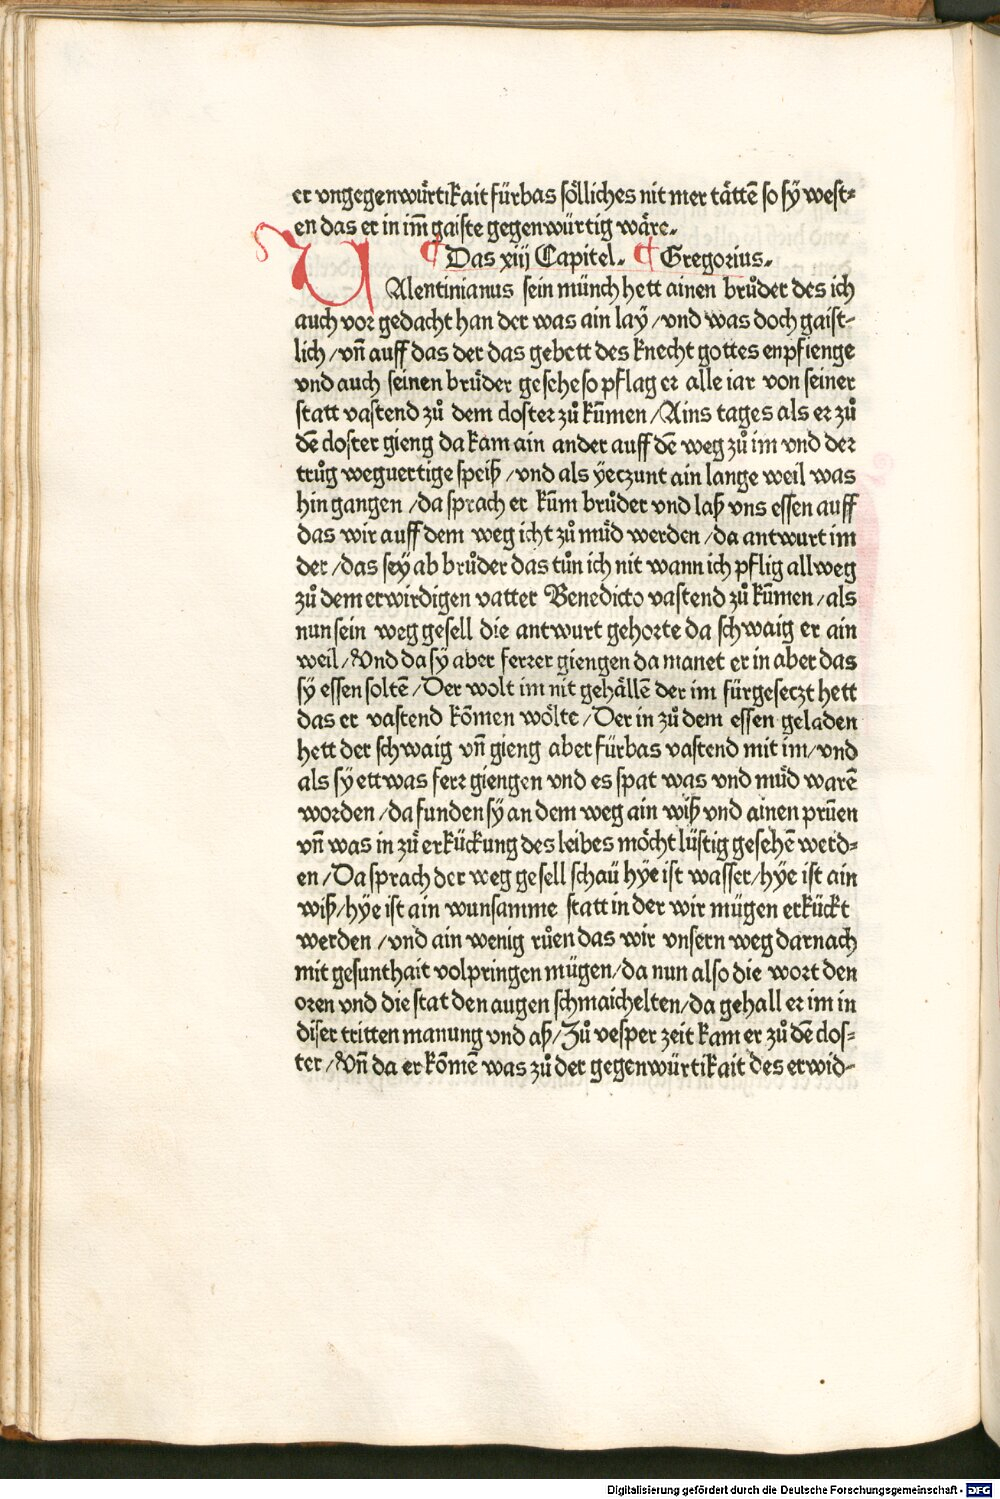 er vngegenwürtikait fürbas sölliches nit mer tättē so sÿ west⸗
en das er in im̄ gaiste gegenwürtig wäre.
¶ Das xiij Capitel. ¶ Gregorius.
VAlentinianus sein münch hett ainen brůder des ich
auch vor gedacht han der was ain laÿ /vnd was doch gaist⸗
lich /vn̄ auff das der das gebett des knecht gottes enpfienge
vnd auch seinen brůder gesehe so pflag er alle iar von seiner
statt vastend zů dem closter zů kūmen /Ains tages als er zů
dē closter gieng da kam ain ander auff dē weg zů im vnd der
trůg weguertige speiß /vnd als ÿeczunt ain lange weil was
hin gangen /da sprach er kūm brůder vnd laß vns essen auff
das wir auff dem weg icht zů müd werden /da antwurt im
der /das seÿ ab brůder das tůn ich nit wann ich pflig allweg
zů dem erwirdigen vatter Benedicto vastend zů kūmen /als
nun sein weg gesell die antwurt gehorte da schwaig er ain
weil /Vnd da sÿ aber ferrer giengen da manet er in aber das
sÿ essen soltē /Der wolt im nit gehällē der im fürgeseczt hett
das er vastend kōmen wölte /Der in zů dem essen geladen
hett der schwaig vn̄ gieng aber fürbas vastend mit im/vnd
als sÿ ettwas ferr giengen vnd es spat was vnd müd warē
worden /da funden sÿ an dem weg ain wiß vnd ainen prūen
vn̄ was in zů erkückung des leibes möcht lüstig gesehē werd⸗
en /Da sprach der weg gesell schaü hÿe ist wasser/hÿe ist ain
wiß/hÿe ist ain wunsamme statt in der wir mügen erkückt
werden /vnd ain wenig růen das wir vnsern weg darnach
mit gesunthait volpringen mügen/da nun also die wort den
oren vnd die stat den augen schmaichelten/da gehall er im in
diser tritten manung vnd aß/Zů vesper zeit kam er zů dē clos⸗
ter /Vn̄ da er kōmē was zů der gegenwürtikait des erwid⸗
Digitalisierung gefördert durch die Deutsche Forschungsgemeinschaft - DFG